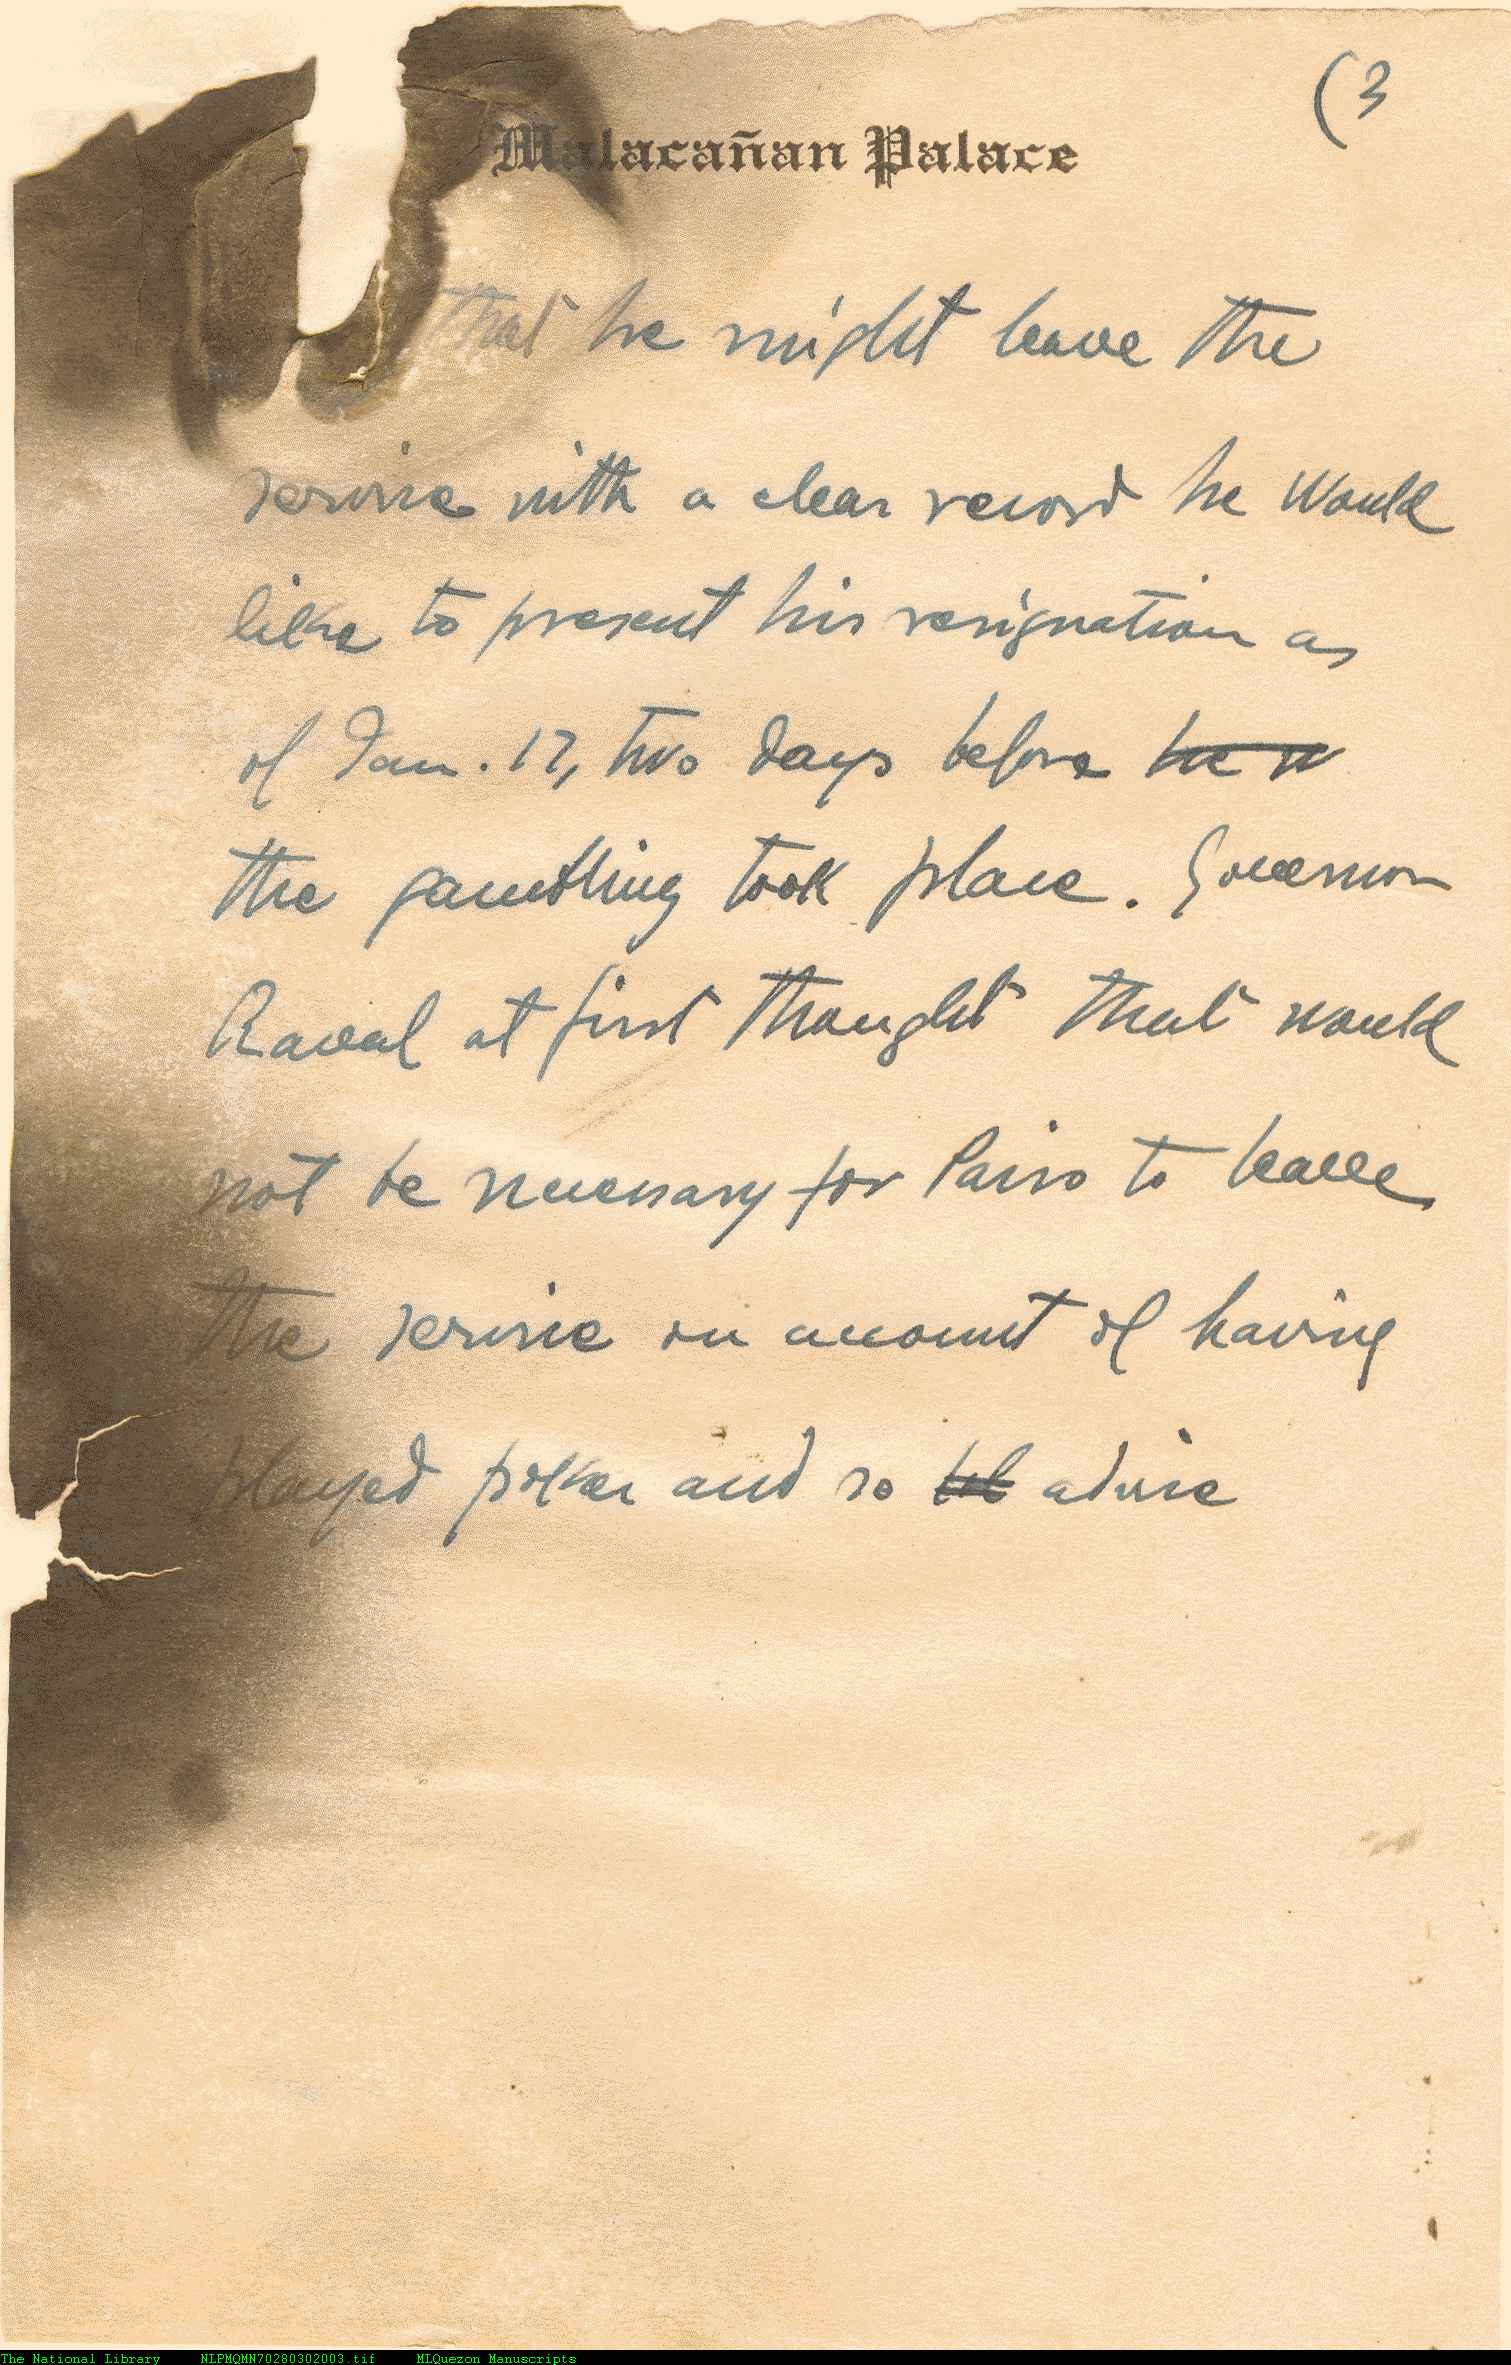 (3
Malacañan Palace
that he might leave the
service with a clear record he would
like to present his resignation as
of Jan. 17, two days before he w
the gambling took place. Governor
Raval at first thought that would
not be necessary for Pairo to leave
the service on account of having
played poker and so advise
The National Library NLPMQMN70280302003.tif MLQuezon Manuscripts